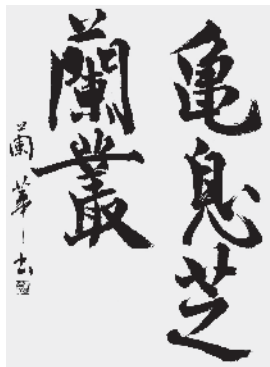 亀息芝
蘭叢
蘭華書